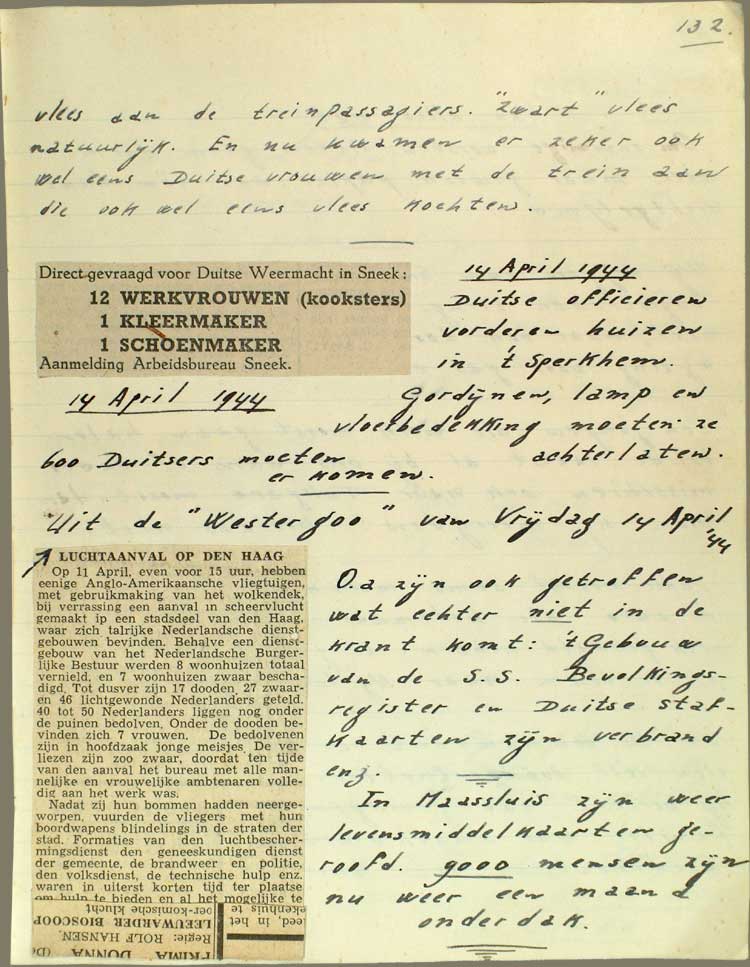 132.
vlees aan de treinpassagiers. "zwart" vlees
natuurlijk. En nu kwamen er zeker ook
wel eens Duitse vrouwen met de trein aan
die ook wel eens vlees kochten.
Direct gevraagd voor Duitse Weermacht in Sneek:
12 WERKVROUWEN (kooksters)
1 KLEERMAKER
1 SCHOENMAKER
Aanmelding Arbeidsbureau Sneek.
14 April 1944
600 Duitsers moeten
er komen.
14 April 1944
Duitse officieren
vorderen huizen
in 't Sperkhem.
Gordijnen, lamp en
vloerbedekking moeten ze
achterlaten.
Uit de "Westergoo" van Vrijdag 14 April
'44
LUCHTAANVAL OP DEN HAAG
Op 11 April, even voor 15 uur, hebben
eenige Anglo-Amerikaansche vliegtuigen,
met gebruikmaking van het wolkendek,
bij verrassing een aanval in scheervlucht
gemaakt op een stadsdeel van den Haag,
waar zich talrijke Nederlandsche dienst-
gebouwen bevinden. Behalve een dienst-
gebouw van het Nederlandsche Burger-
lijke Bestuur werden 8 woonhuizen totaal
vernield, en 7 woonhuizen zwaar bescha-
digd. Tot dusver zijn 17 dooden, 27 zwaar-
en 46 lichtgewonde Nederlanders geteld.
40 tot 50 Nederlanders liggen nog onder
de puinen bedolven. Onder de dooden be-
vinden zich 7 vrouwen. De bedolvenen
zijn in hoofdzaak jonge meisjes. De ver-
liezen zijn zoo zwaar, doordat ten tijde
van den aanval het bureau met alle man-
nelijke en vrouwelijke ambtenaren volle-
dig aan het werk was.
Nadat zij hun bommen hadden neerge-
worpen, vuurden de vliegers met hun
boordwapens blindelings in de straten der
stad. Formaties van den luchtbescher-
mingsdienst den geneeskundigen dienst
der gemeente, de brandweer en politie,
den volksdienst, de technische hulp enz.
waren in uiterst korten tijd ter plaatse
om hulp te bieden en al het mogelijke te
O.a zijn ook getroffen
wat echter niet in de
krant komt: 't Gebouw
van de S.S. Bevolkings-
register en Duitse staf-
kaarten zijn verbrand
enz.
In Maassluis zijn weer
levensmiddelkaarten ge-
roofd. 9000 mensen zijn
nu weer een maand
onderdak.
PRIMA DONNA
Regie: ROLF HANSEN.
LEEUWARDER BIOSCOOP
per-komische klucht
leed, in het
ekenhuis te